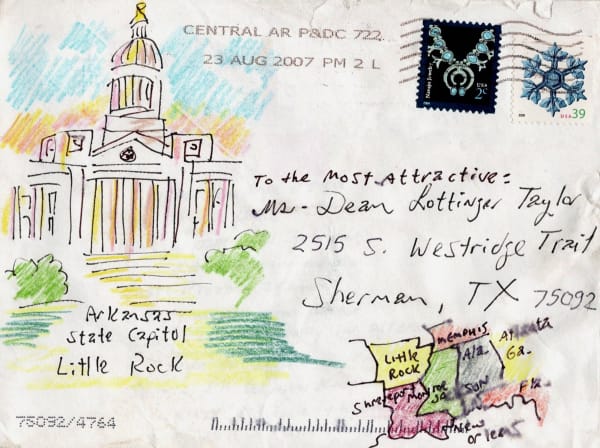 CENTRAL AR P&DC 722
23 AUG 2007 PM 2 L
Navajo Jewelry
USA
2¢
USA 39
To the Most Attractive:
Ms. Dean Lottinger Taylor
2515 S. Westridge Trail
Sherman, TX 75092
Arkansas
State Capitol
Little Rock
MEMPHIS
Atlanta
Ga.
Little
Rock
Ala.
Shreveport
Monroe
Jackson
Fla.
New
Orleans
75092/4764